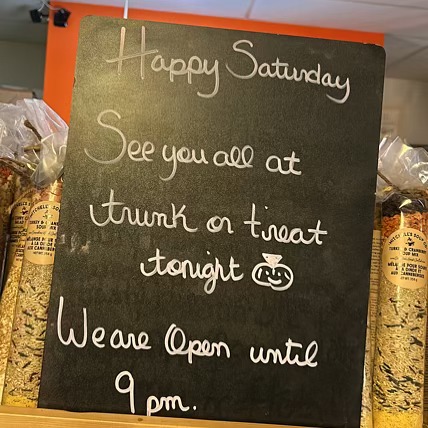 Happy Saturday
See you all at
trunk or treat
tonight
We are Open until
9 pm.
TURKEY & CRANBERRY
SOUP MIX